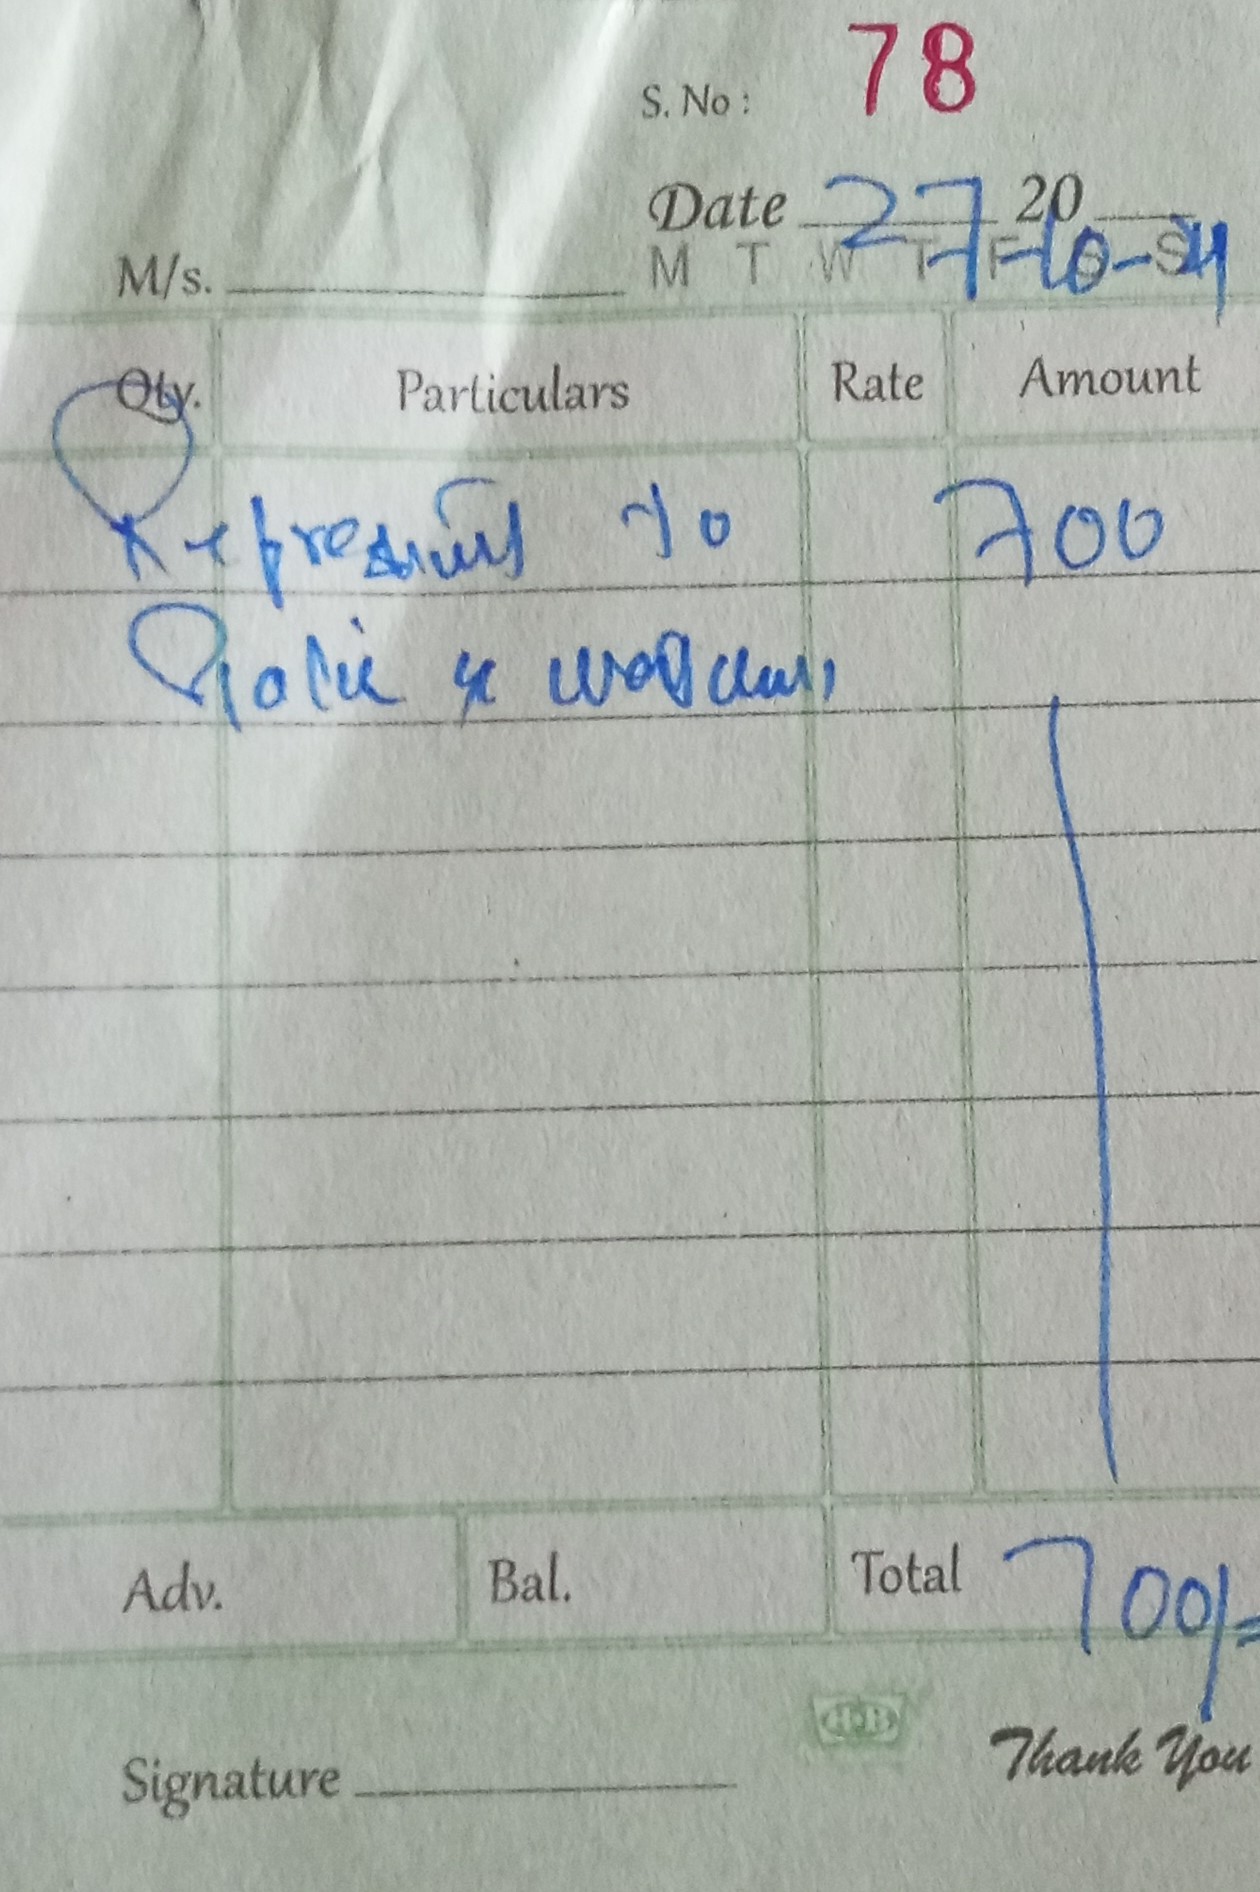 S. No : 78
Date 27-10-24 20
M T W T F S S
M/s.
Qty. Particulars Rate Amount
Refreshment to 700
Police &
Adv. Bal. Total 700/=
H·B
Signature Thank You